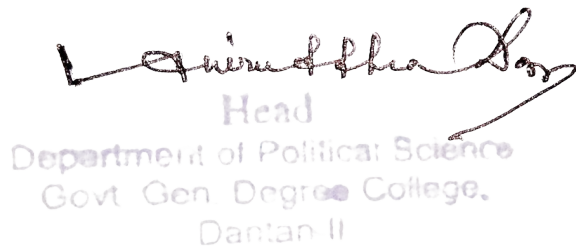 Aniruddha
Head
Department of Political Science
Govt Gen Degree College.
Dantan II